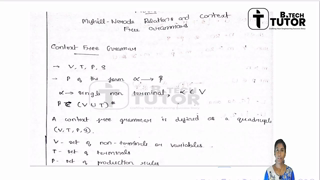 Myhill-Nerode Relations and Context
Free Grammars
B.TECH
TUTOR
Context Free Grammar
→ V, T, P, S
→ P of the form α → β
α → single non terminal, α ∈ V
β ∈ (V ∪ T)*
A context free grammar is defined as a quadruple
(V, T, P, S).
V - set of non-terminals or variables
T - set of terminals
P - set of production rules